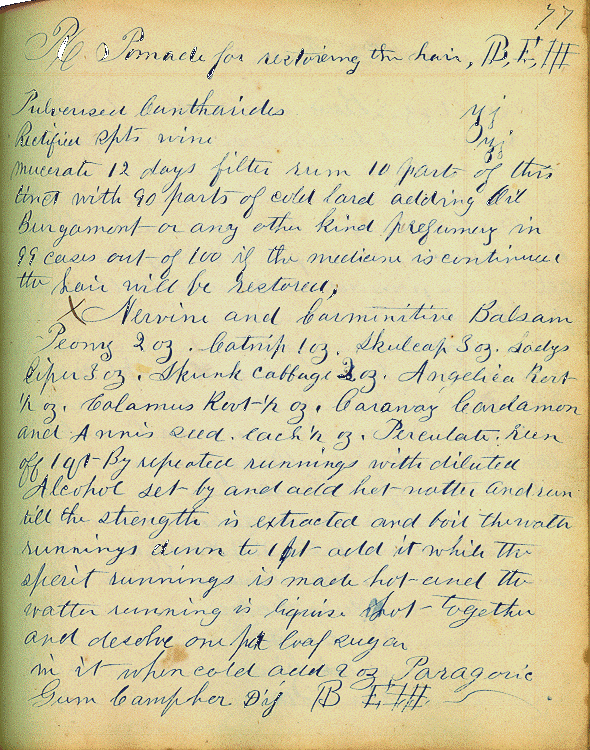 77
Rx. Pomade for restoreing the hair, B, E, HH
Pulverised Cantharides ʒj
Rectified spts wine ℥j
mucerate 12 days filter rum 10 parts of this
tinct with 90 parts of cold lard adding Oil
Burgamont or any other kind prefumery in
99 cases out of 100 if the medicine is continued
the hair will be restored;
X Nervine and Carminitive Balsam
Peony 2 oz. Catnip 1 oz. Skulcap 3 oz. Ladys
Sliper 3 oz. Skunk cabbage 2 oz. Angelica Root
½ oz. Calamus Root ½ oz. Caraway Cardamon
and Annis seed. each ½ oz. Perculate. Run
off 1 qt By repeated runnings with diluted
Alcohol set by and add hot watter and run
till the strength is extracted and boil the watter
runnings down to 1 pt add it while the
sperit runnings is made hot and the
watter running is liquise hot together
and desolve one pt loaf sugar
in it when cold add 2 oz Paragoric
Gum Campher Dij B E. HH.